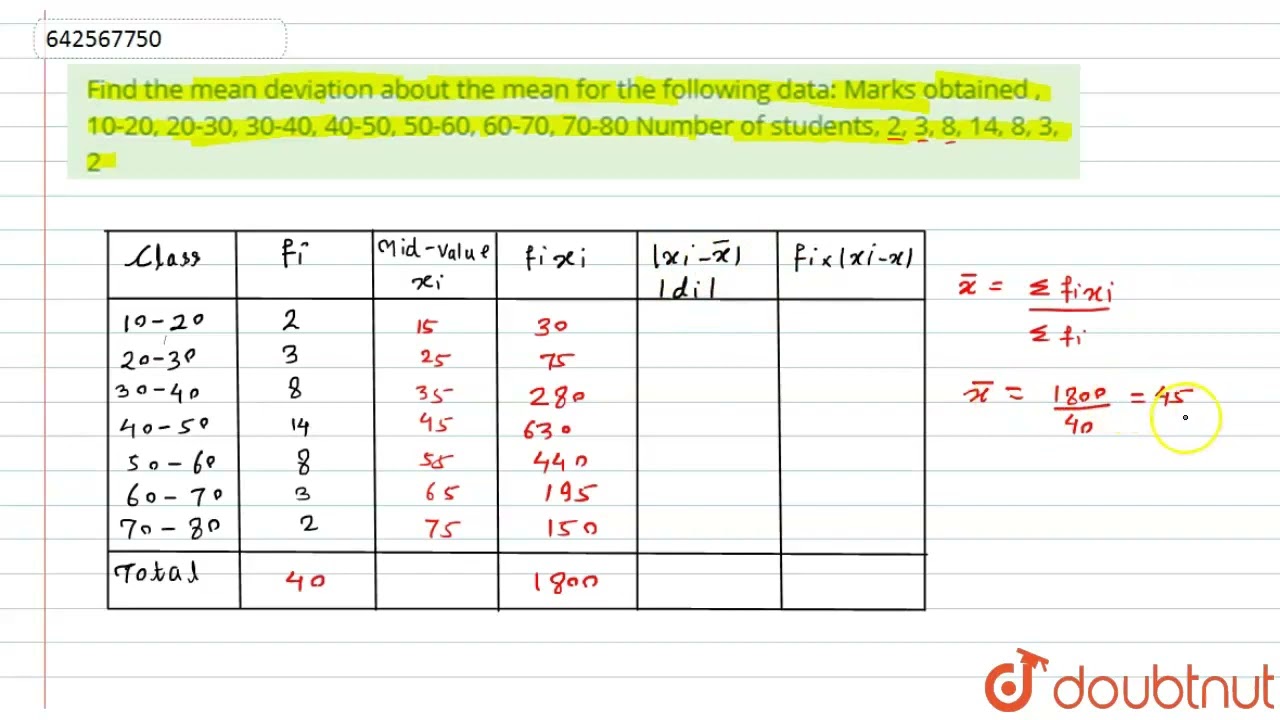 642567750
Find the mean deviation about the mean for the following data: Marks obtained ,
10-20, 20-30, 30-40, 40-50, 50-60, 60-70, 70-80 Number of students, 2, 3, 8, 14, 8, 3,
2
Class fi Mid-value xi fixi |xi-x̄| |di| fi×|xi-x|
10-20 2 15 30
20-30 3 25 75
30-40 8 35 280
40-50 14 45 630
50-60 8 55 440
60-70 3 65 195
70-80 2 75 150
Total 40 1800
x̄ = Σ fixi / Σ fi
x̄ = 1800 / 40 = 45
doubtnut